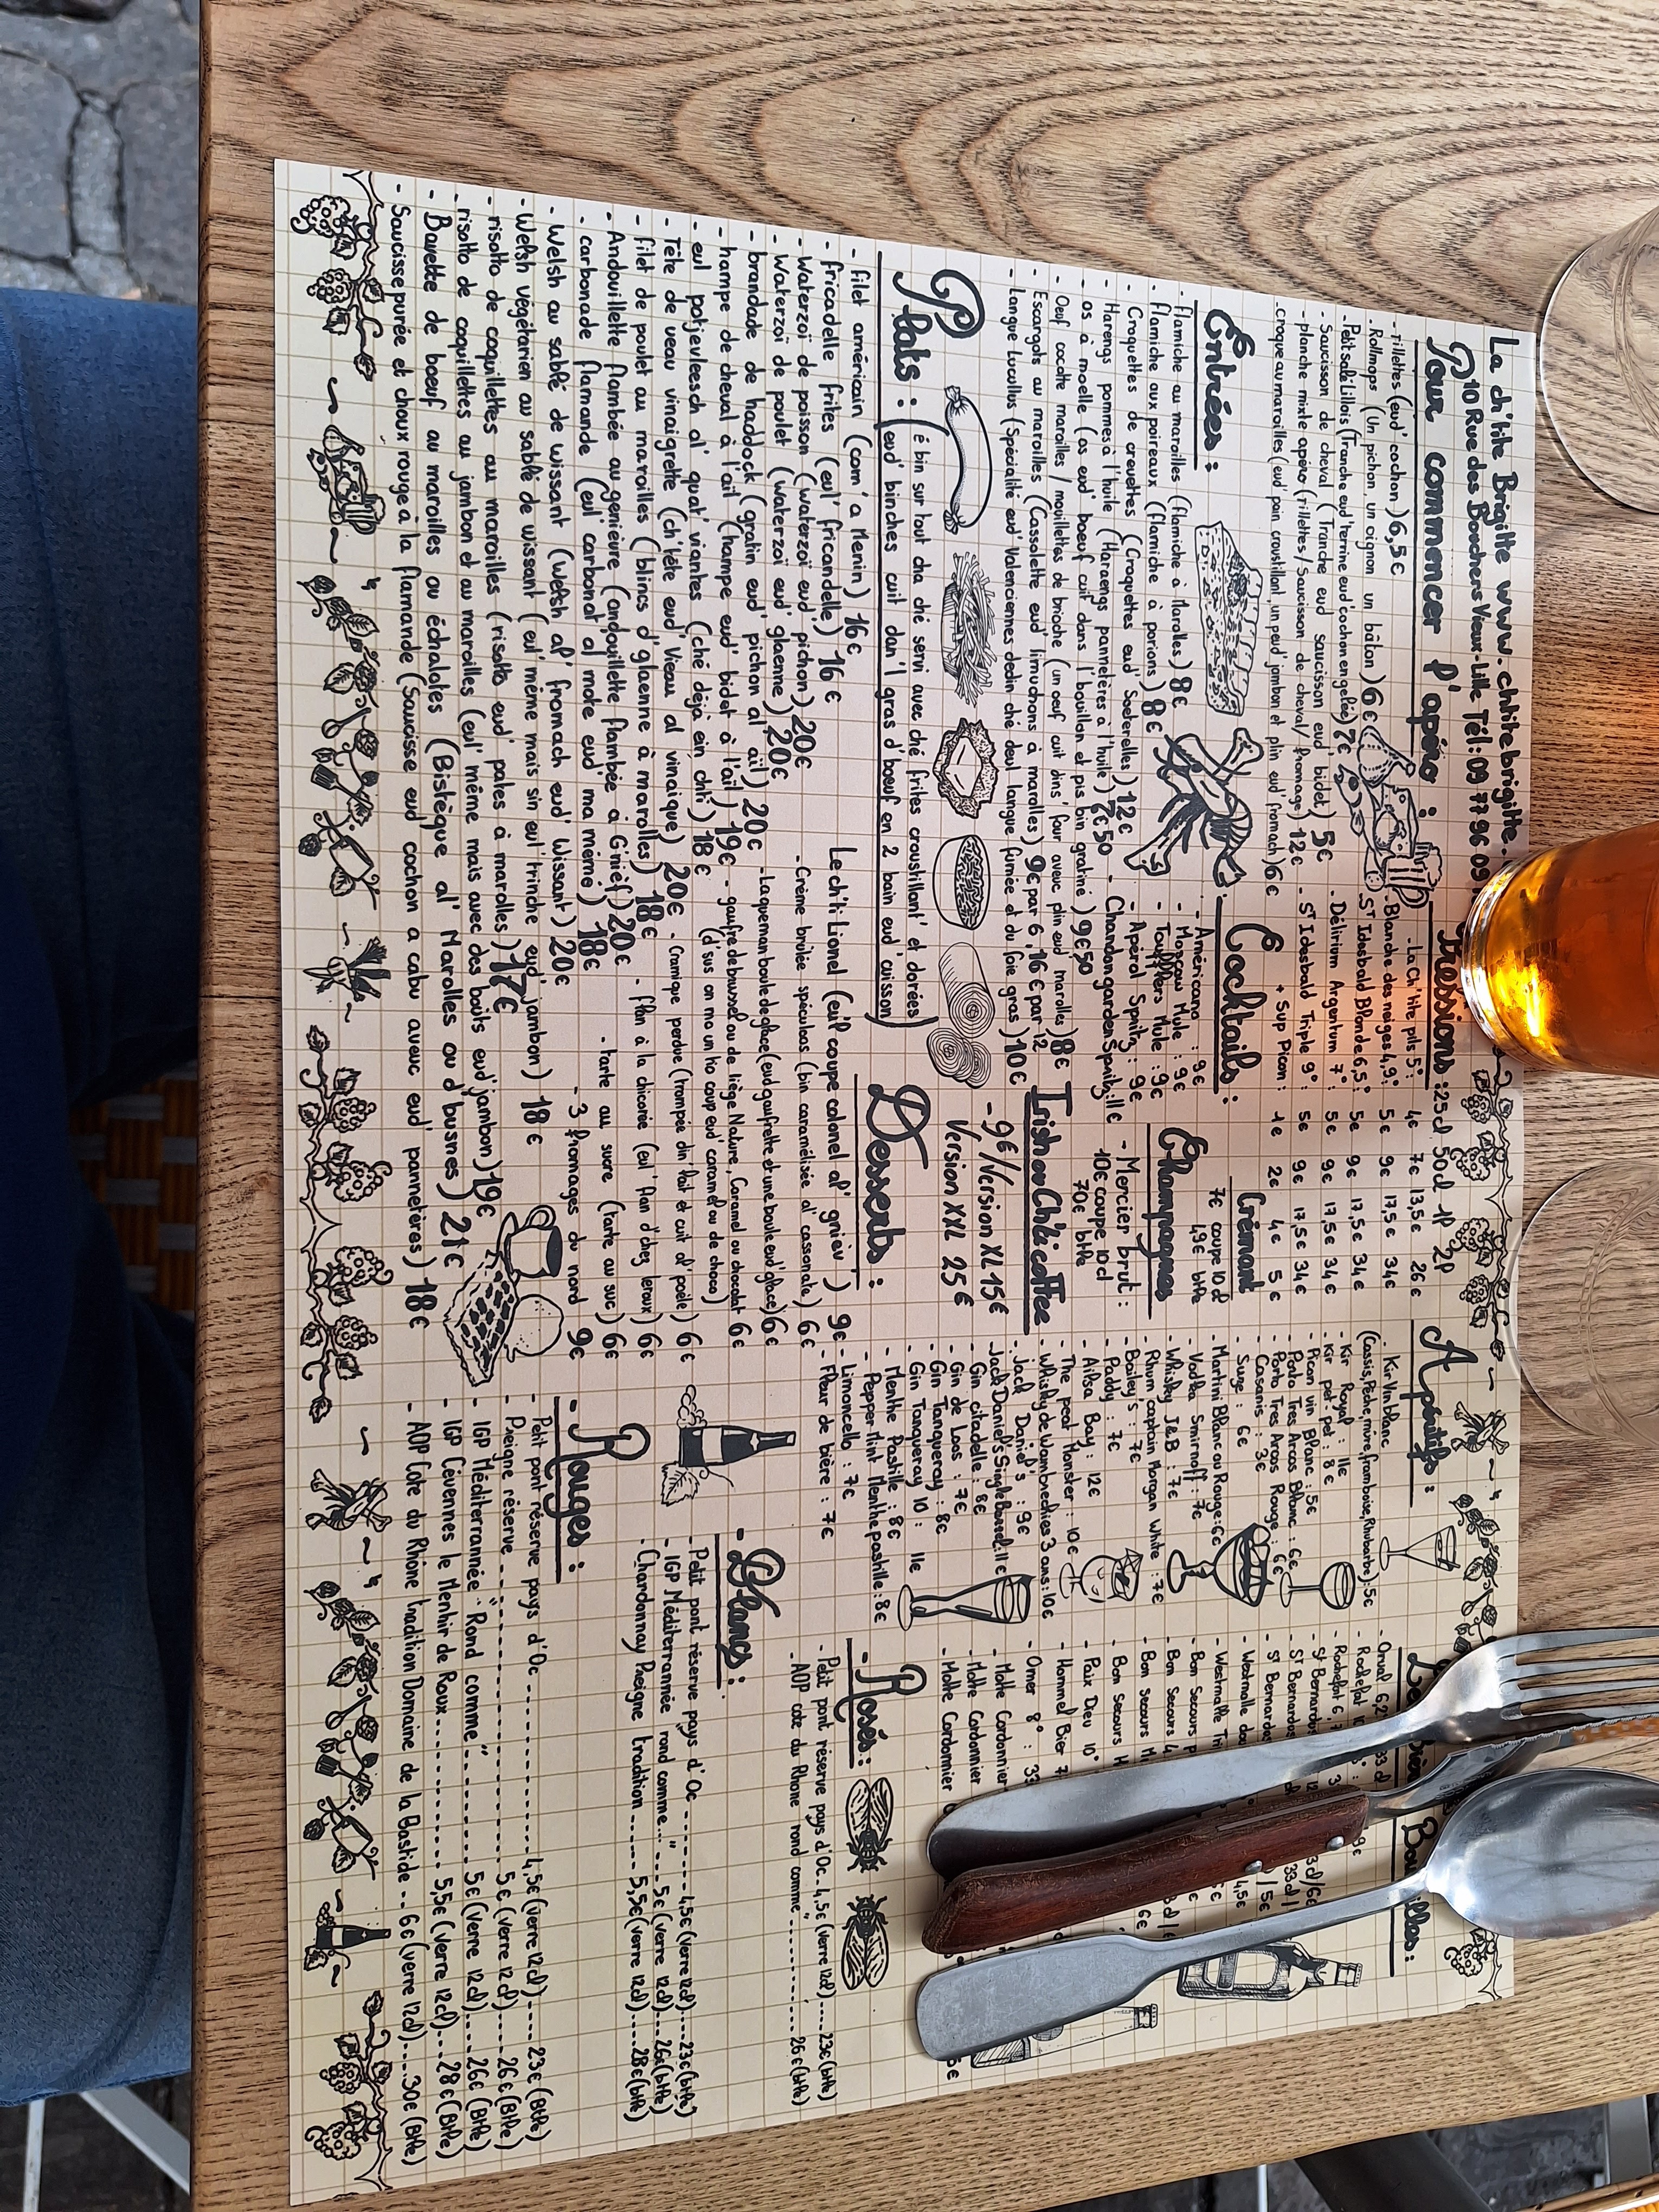 La ch'tite Brigitte www.chtitebrigitte.
10 Rue des Bouchers Vieux-Lille Tél: 09 77 96 09
Pour commencer l'apéro :
- rillettes (eud' cochon) 6,5€
- Rollmops (Un pichon, un oignon un bâton) 6€
- Petit salé Lillois (Tranche eud' terrine eud' cochon en gelée) 7€
- Saucisson de cheval (Tranche eud saucisson eud bidet) 5€
- planche mixte apéro (rillettes/Saucisson de cheval/fromage) 12€
- croque au maroilles (eud' pain croustillant, un peu d' jambon et plin eud' fromach) 6€
Entrées :
- flamiche au maroilles (flamiche à Marolles) 8€
- flamiche aux poireaux (flamiche à porions) 8€
- Croquettes de crevettes (Croquettes eud' Soeterelles) 12€
- Harengs pommes à l'huile (Haraengs pannetères à l'huile) 7€50
- os à moelle (os eud' boeuf cuit dans l'bouillon et pis bin gratiné) 9€50
- Oeuf cocotte maroilles / mouillettes de brioche (un oeuf cuit dins' four aveuc plin eud marolles) 8€
- Escargots au maroilles (Cassolette eud' limuchons à marolles) 9€ par 6, 16€ par 12
- Langue Lucullus (Spécialité eud' Valenciennes dedin ché deul langue fumée et du foie gras) 10€
Plats :
(é bin sur tout cha ché servi avec ché frites croustillant' et dorées)
(eud' binches cuit dan'l gras d'boeuf en 2 bain eud' cuisson)
- filet américain (com' a Menin) 16€
- fricadelle frites (eul' fricandelle) 16€
- Waterzoï de poisson (waterzoï eud' pichon) 20€
- Waterzoï de poulet (waterzoï eud' glaenne) 20€
- brandade de haddock (gratin eud' pichon al' ail) 20€
- hampe de cheval à l'ail (hampe eud' bidet à l'ail) 19€
- eul potjevleesch al' quat' viantes (ché déjà ein chti) 18€
- Tête de veau vinaigrette (ch'tête eud' Vieau al vinaique) 20€
- filet de poulet au maroilles (blincs d'glaenne à marolles) 18€
- Andouillette flambée au genièvre (andouillette flambée à G'nief) 20€
- carbonade flamande (eul' carbonat al mote eud' ma mémé) 18€
- Welsh au sablé de wissant (welsh al' fromach eud' Wissant) 20€
- Welsh végétarien au sablé de wissant (eul' même mais sin eul trinche eud' jambon) 18€
- risotto de coquillettes au maroilles (risotto eud' pates à marolles) 17€
- risotto de coquillettes au jambon et au maroilles (eul' même mais avec des bouts eud' jambon) 19€
- Bavette de boeuf au maroilles ou échalotes (Bistèque al' Marolles ou d'busnes) 21€
- Saucisse purée et choux rouge à la flamande (Saucisse eud' cochon a cabu aveuc eud' pannetères) 18€
Pressions : 25cl 50cl 1P 2P
- La Ch'tite pils 5° : 4€ 7€ 13,5€ 26€
- Blanche des neiges 4,9° : 5€ 9€ 17,5€ 34€
- St Idesbald Blonde 6,5° : 5€ 9€ 17,5€ 34€
- Délirium Argentum 7° : 5€ 9€ 17,5€ 34€
- St Idesbald Triple 9° : 5€ 9€ 17,5€ 34€
+ Sup Picon : 1€ 2€ 4€ 5€
Cocktails :
- Américano : 9€
- Moscow Mule : 9€
- Toufflers Mule : 9€
- Apérol Spritz : 9€
- Chandon garden Spritz : 11€
Crémant
7€ coupe 10cl
49€ btlle
Champagnes
- Mercier brut :
10€ coupe 10cl
70€ btlle
Irish ou Ch'ti coffee
- 9€/Version XL 15€
Version XXL 25€
Desserts :
Le ch'ti Lionel (eul' coupe colonel al' gniev') 9€
- Crème brulée spéculoos (bin caramélisée al' cassonate) 6€
- La queneman boule de glace (eud gaufrette et une boule eud' glace) 6€
- gaufre de bruxsel ou de liège Nature, Caramel ou chocolat 6€
(d'sus on ma un tio coup eud' caramel ou de choco)
- Cramique perdue (trompée din l'lait et cuit al' poele) 6€
- flan à la chicorée (eul' flan d'chez leroux) 6€
- tarte au sucre (tarte au suc) 6€
- 3 fromages du nord 9€
Apéritifs :
- Kir Vin blanc
(Cassis, Pêche, mûre, framboise, Rhubarbe) : 5€
- Kir Royal : 11€
- Kir pet-pet : 8€
- Picon vin Blanc : 5€
- Porto Tres Arcos Blanc : 6€
- Porto Tres Arcos Rouge : 6€
- Casanis : 3€
- Suze : 6€
- Martini Blanc ou Rouge : 6€
- Vodka Smirnoff : 7€
- Whisky J&B : 7€
- Rhum captain Morgan White : 7€
- Bailey's : 7€
- Paddy : 7€
- Ailsa Bay : 12€
- The peat Monster : 10€
- Whisky de Wambrechies 3 ans : 10€
- Jack Daniel's : 9€
- Jack Daniel's Single Barrel : 11€
- Gin citadelle : 8€
- Gin de Loos : 7€
- Gin Tanqueray : 8€
- Gin Tanqueray 10 : 11€
- Menthe Pastille : 8€
- Pepper Mint Menthe pastille : 8€
- Limoncello : 7€
- Fleur de bière : 7€
- Orval 6,2°
- Rochefort 10°
- Rochefort 6, 7
- St Bernardus
- St Bernardus
- St Bernardus
- Westmalle
- Westmalle Tri
- Bon Secours
- Bon Secours
- Bon Secours
- Bon Secours
- Paix Dieu 10°
- Hommel Bier 7
- Omer 8° : 33
- Motte Cordonnier
- Motte Cordonnier
- Motte Cordonnier
- Rosés :
- Petit pont réserve pays d'Oc -- 4,5€ (verre 12cl) ---- 23€ (btlle)
- AOP cote du Rhone rond comme " ---- 26€ (btlle)
- Blancs :
- Petit pont réserve pays d'Oc ---- 4,5€ (verre 12cl) ---- 23€ (btlle)
- IGP Méditerrannée rond comme... " ---- 5€ (verre 12cl) ---- 26€ (btlle)
- Chardonnay Preigne tradition ---- 5,5€ (verre 12cl) ---- 28€ (btlle)
- Rouges :
- Petit pont réserve pays d'Oc ---- 4,5€ (verre 12cl) ---- 23€ (Btlle)
- Preigne réserve ---- " ---- 5€ (verre 12cl) ---- 26€ (Btlle)
- IGP Méditerrannée "Rond comme" ---- 5€ (verre 12cl) ---- 26€ (Btlle)
- IGP Cévennes le Menhir de Roux ---- 5,5€ (verre 12cl) ---- 28€ (Btlle)
- AOP Cote du Rhône tradition Domaine de la Bastide -- 6€ (verre 12cl) ---- 30€ (Btlle)